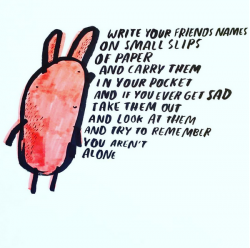 WRITE YOUR FRIENDS NAMES
ON SMALL SLIPS
OF PAPER
AND CARRY THEM
IN YOUR POCKET
AND IF YOU EVER GET SAD
TAKE THEM OUT
AND LOOK AT THEM
AND TRY TO REMEMBER
YOU AREN'T
ALONE